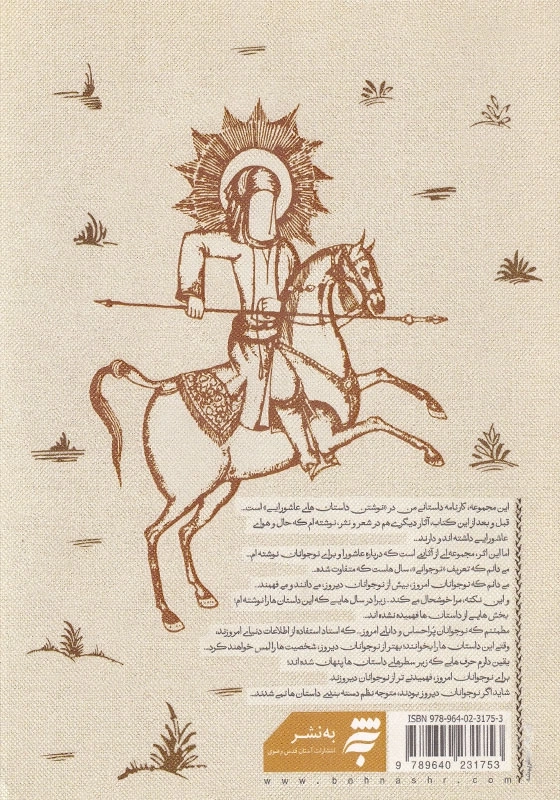 این مجموعه، کارنامه داستانی من در «نوشتن داستان های عاشورایی» است..
قبل و بعد از این کتاب، آثار دیگری هم در شعر و نثر، نوشته ام که حال و هوای
عاشورایی داشته اند و دارند..
اما این اثر، مجموعه ای از آثاری است که درباره عاشورا و برای نوجوانان نوشته ام..
می دانم که تعریف «نوجوانی»، سال هاست که متفاوت شده..
می دانم که نوجوانان امروز، بیش از نوجوانان دیروز، می دانند و می فهمند..
و این نکته، مرا خوشحال می کند.. زیرا در سال هایی که این داستان ها را نوشته ام؛
بخش هایی از داستان ها فهمیده نشده اند..
مطمئنم که نوجوانان پراحساس و دانای امروز.. که استاد استفاده از اطلاعات دنیای امروزند،
وقتی این داستان ها را بخوانند؛ بهتر از نوجوانان دیروز، شخصیت ها را لمس خواهند کرد..
یقین دارم حرف هایی که زیر سطرهای داستان ها پنهان شده اند؛
برای نوجوانان امروز، فهمیدنی تر از نوجوانان دیروزند..
شاید اگر نوجوانان دیروز بودند، متوجه نظم دسته بندی داستان ها نمی شدند..
به نشر
انتشارات آستان قدس رضوی
ISBN 978-964-02-3175-3
9 789640 231753
www.behnashr.com